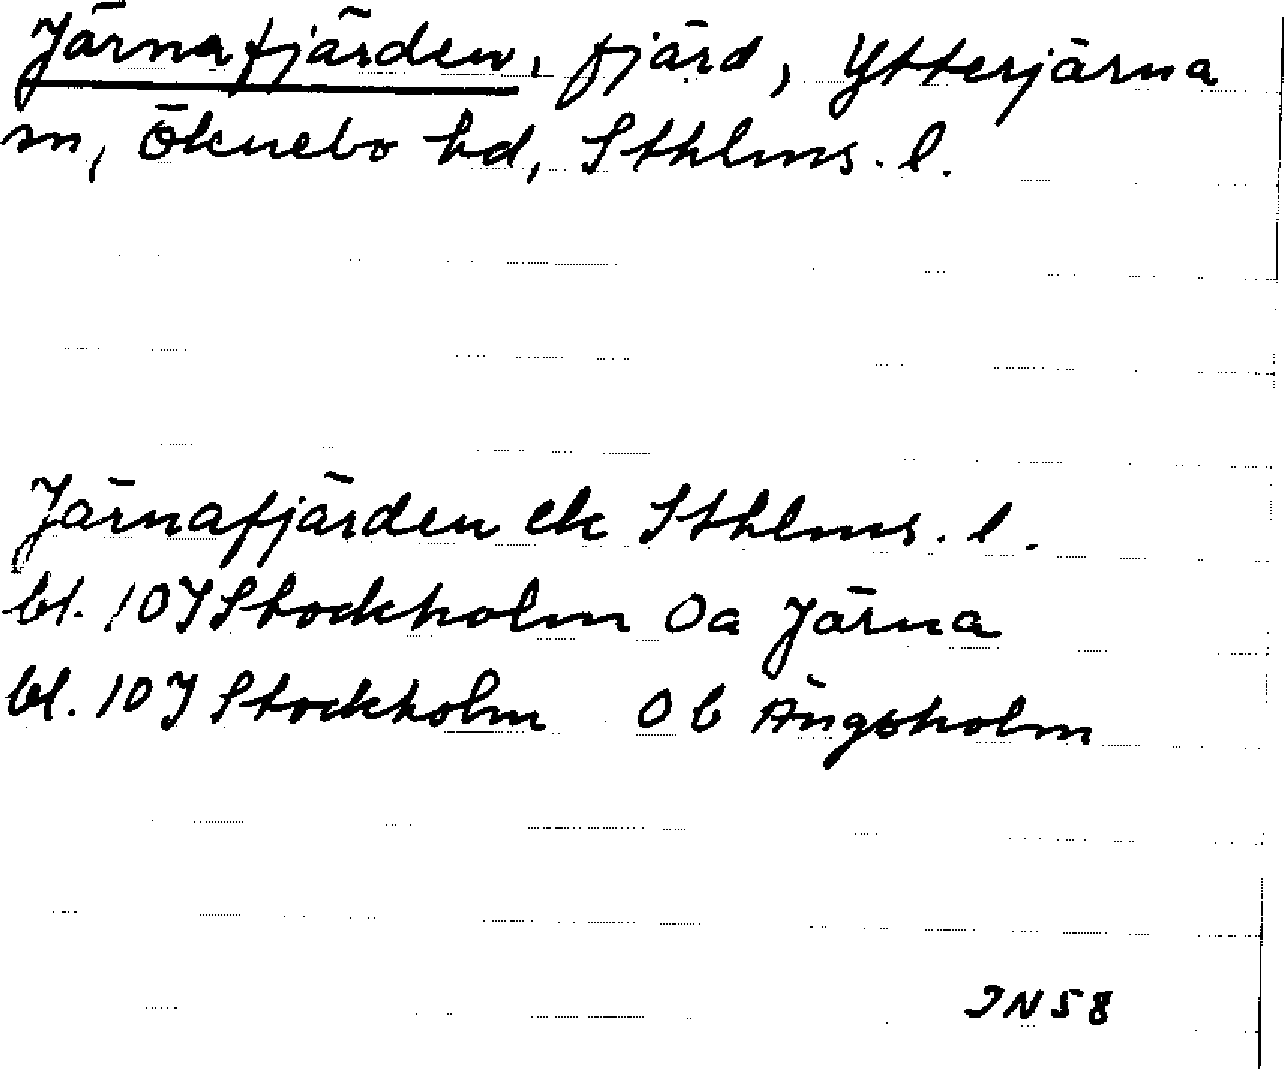 Järnafjärden, fjärd, Ytterjärna
sn, Öknebo hd, Sthlms. l.
Järnafjärden ek Sthlms. l.
bl. 10 I Stockholm 0a Järna
bl. 10 I Stockholm 0b Ängsholm
IN 58